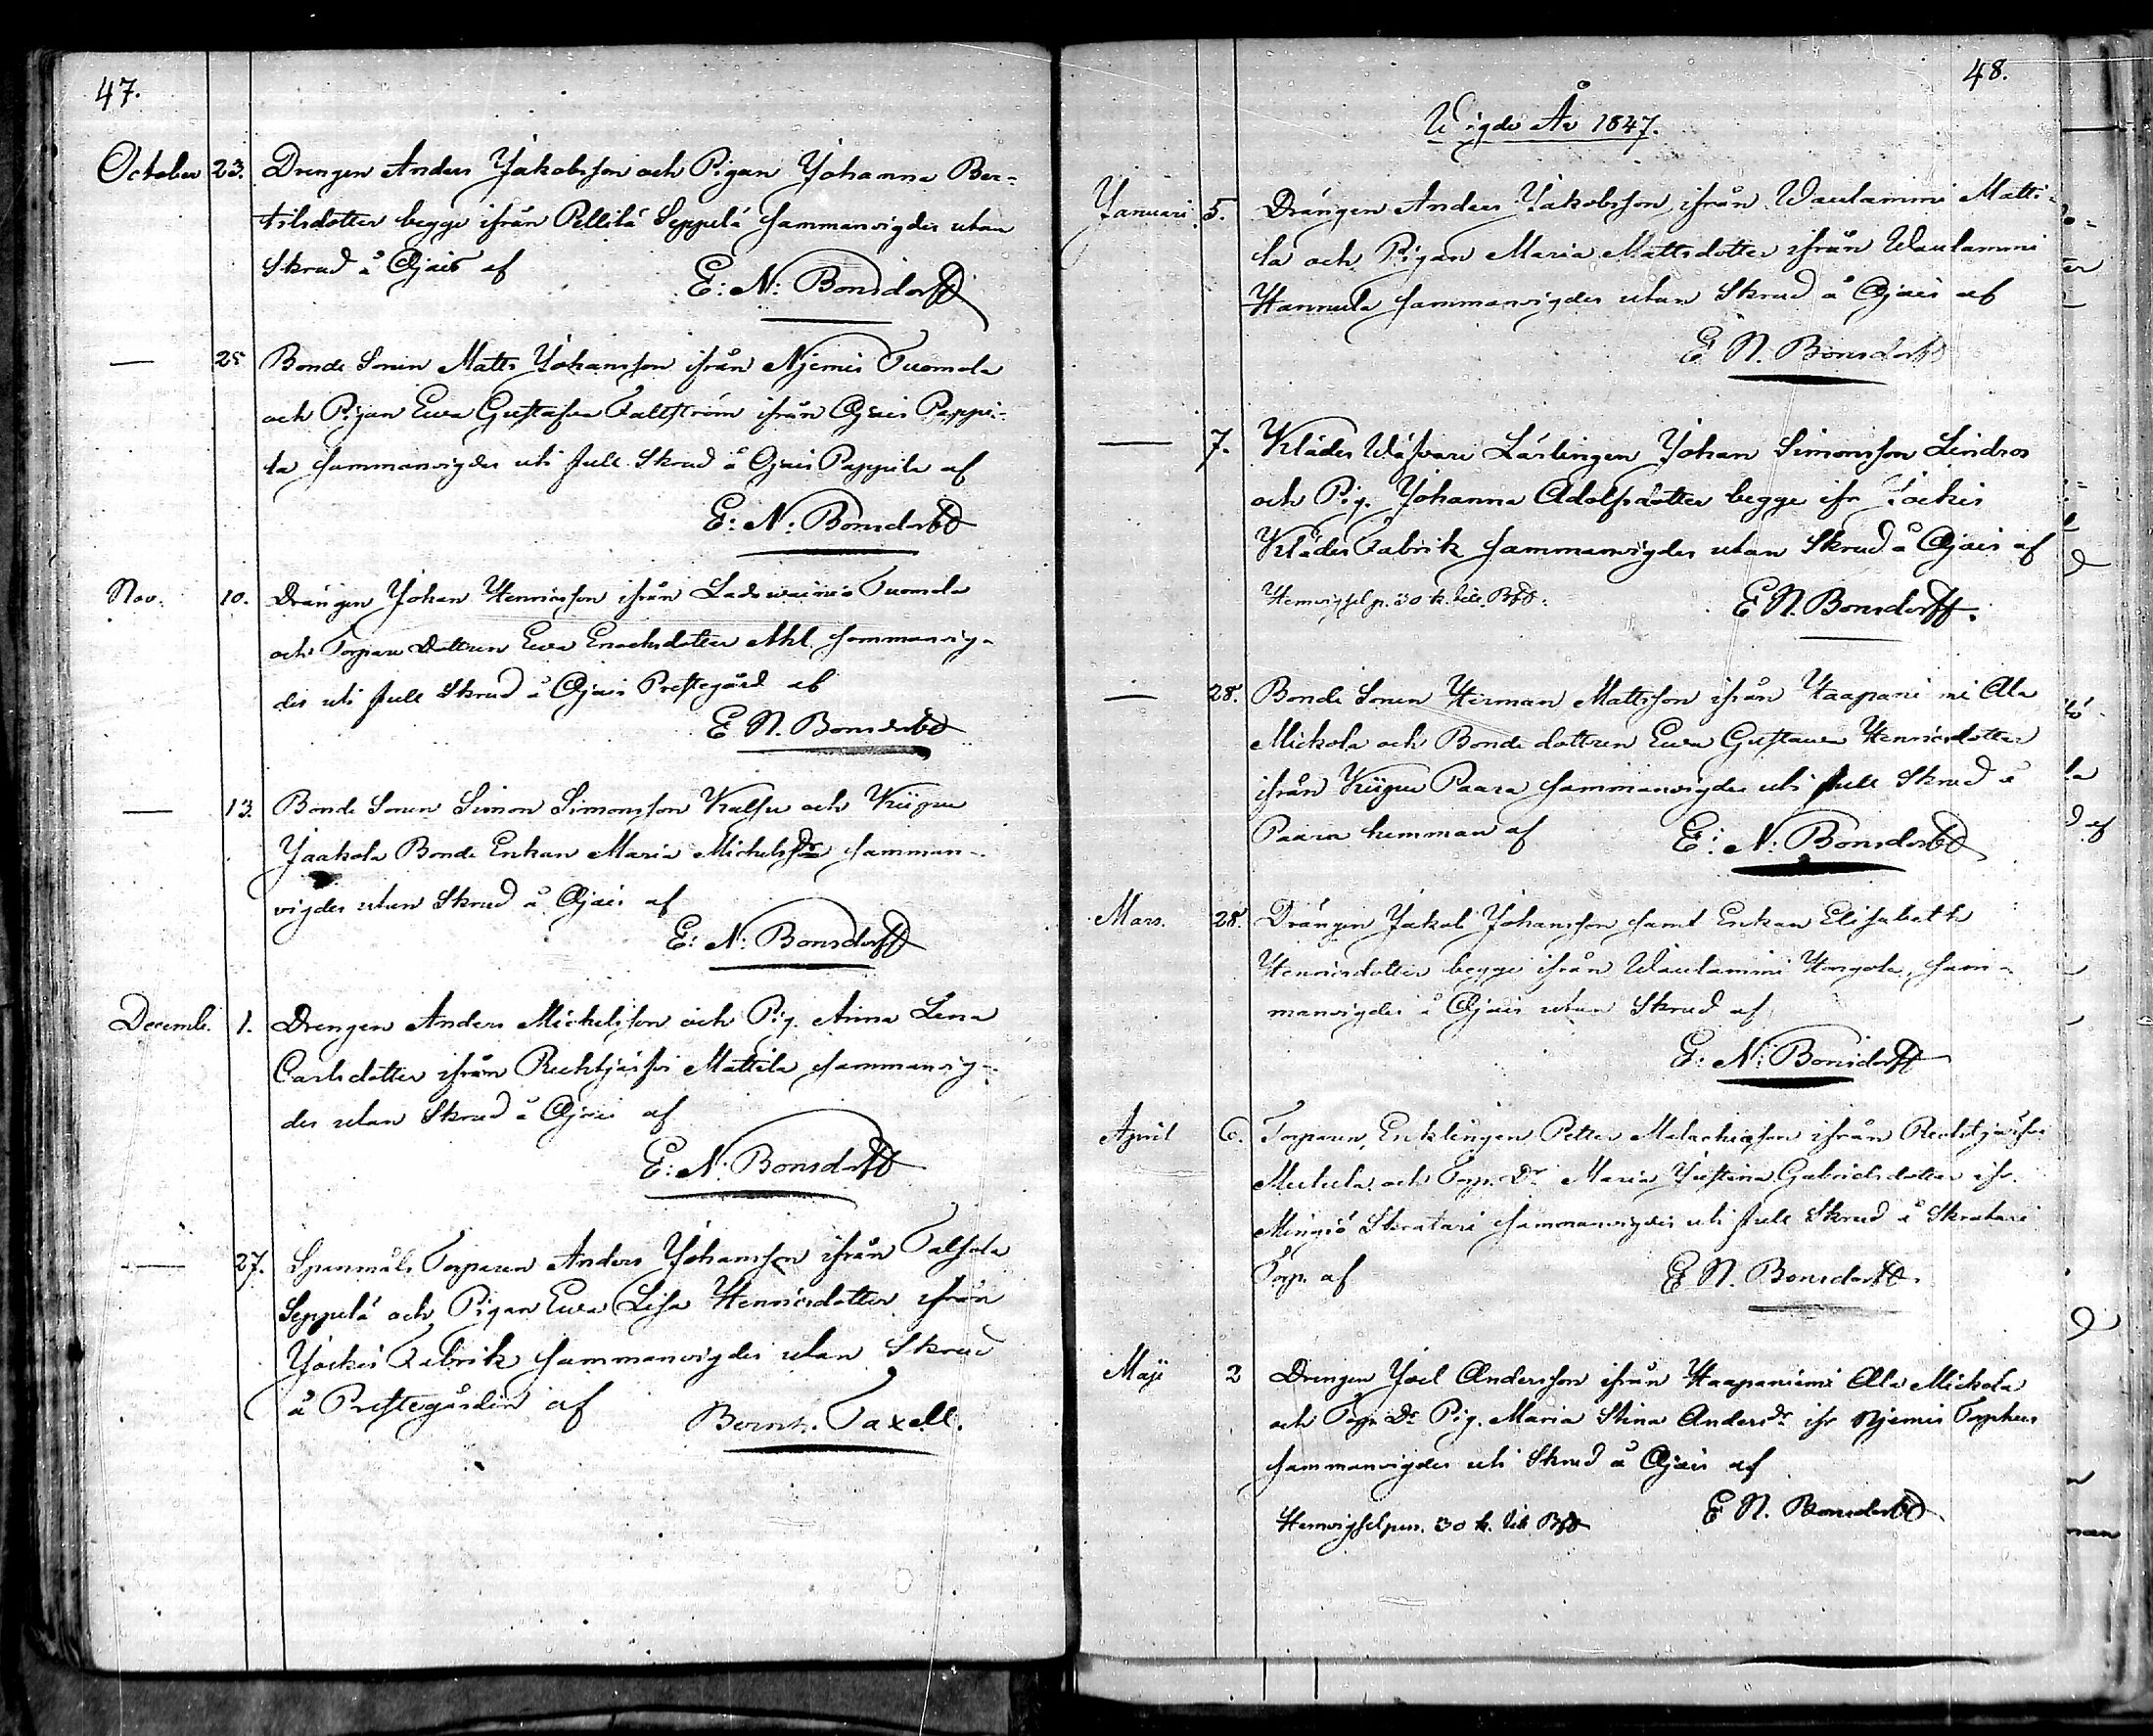 47.
October 23. Drengen Anders Jakobsson och Pigan Johanna Ber-
tilsdotter begge ifrån Pellilä Seppelä sammanvigdes utan
Skrud å Ojais af
E: N: Bonsdorff
— 25 Bonde Sonen Matts Johansson ifrån Njemis Tuomola
och Pigan Ewa Gustafva Fallström ifrån Ojais Pappi-
la sammanvigdes uti full Skrud å Ojais Pappila af
E: N: Bonsdorff
Nov. 10. Drängen Johan Henricsson ifrån Tuomola
och Torpare Dottren Ewa Enochsdotter Ahl sammanvig-
des uti full Skrud å Ojais Prestegård af
E N. Bonsdorff
— 13. Bonde Sonen Simon Simonsson Kalsu och Kiipu
Jaakola Bonde Enkan Maria Michelsdr samman-
vigdes utan Skrud å Ojais af
E: N: Bonsdorff
Decemb. 1. Drengen Anders Michelsson och Pig. Anna Lena
Carlsdotter ifrån Rechtijärfvi Mattila sammanvig-
des utan Skrud å Ojais af
E: N: Bonsdorff
— 27. Spanmåls Torparen Anders Johansson ifrån Talsola
Seppelä och Pigan Ewa Lisa Henricsdotter ifrån
Jockis Fabrik sammanvigdes utan Skrud
å Prestegården af
Bernh. Taxell.
48.
Wigde År 1847.
Januari. 5. Drängen Anders Jakobsson ifrån Waulammi Matti-
la och Pigan Maria Mattsdotter ifrån Waulammi
Hannula sammanvigdes utan Skrud å Ojais af
E N. Bonsdorff
— 7. Klädes Wäfvare Lärlingen Johan Simonsson Lindros
och Pig. Johanna Adolfsdotter begge ifr Jockis
Klädes Fabrik sammanvigdes utan Skrud å Ojais af
Hemvigselp. 30 k. till Bff.
E N. Bonsdorff.
— 28. Bonde Sonen Herman Mattsson ifrån Haapaniemi Ala
Mickola och Bonde dottren Ewa Gustava Henricsdotter
ifrån Kiipu Paara sammanvigdes uti full Skrud å
Paara hemman af
E: N: Bonsdorff
Mars. 28. Drängen Jakob Johansson samt Enkan Elisabeth
Henricsdotter begge ifrån Waulammi Hongola, sam-
manvigdes å Ojais utan Skrud af
E: N: Bonsdorff
April 6. Torparen, Enklingen Petter Malachiasson ifrån Rechtijärfvi
och Torp. Dr Maria Justina Gabrielsdotter ifr.
Minjiö Skratari sammanvigdes uti full Skrud å Skratari
Torp af
E N. Bonsdorff.
Maji 2 Drengen Joel Andersson ifrån Haapaniemi Ala Mickola
och Torp. Dr Pig. Maria Stina Andersdr ifr Njemis
sammanvigdes uti Skrud å Ojais af
E N. Bonsdorff
Hemvigselpen. 30 k. till Bff